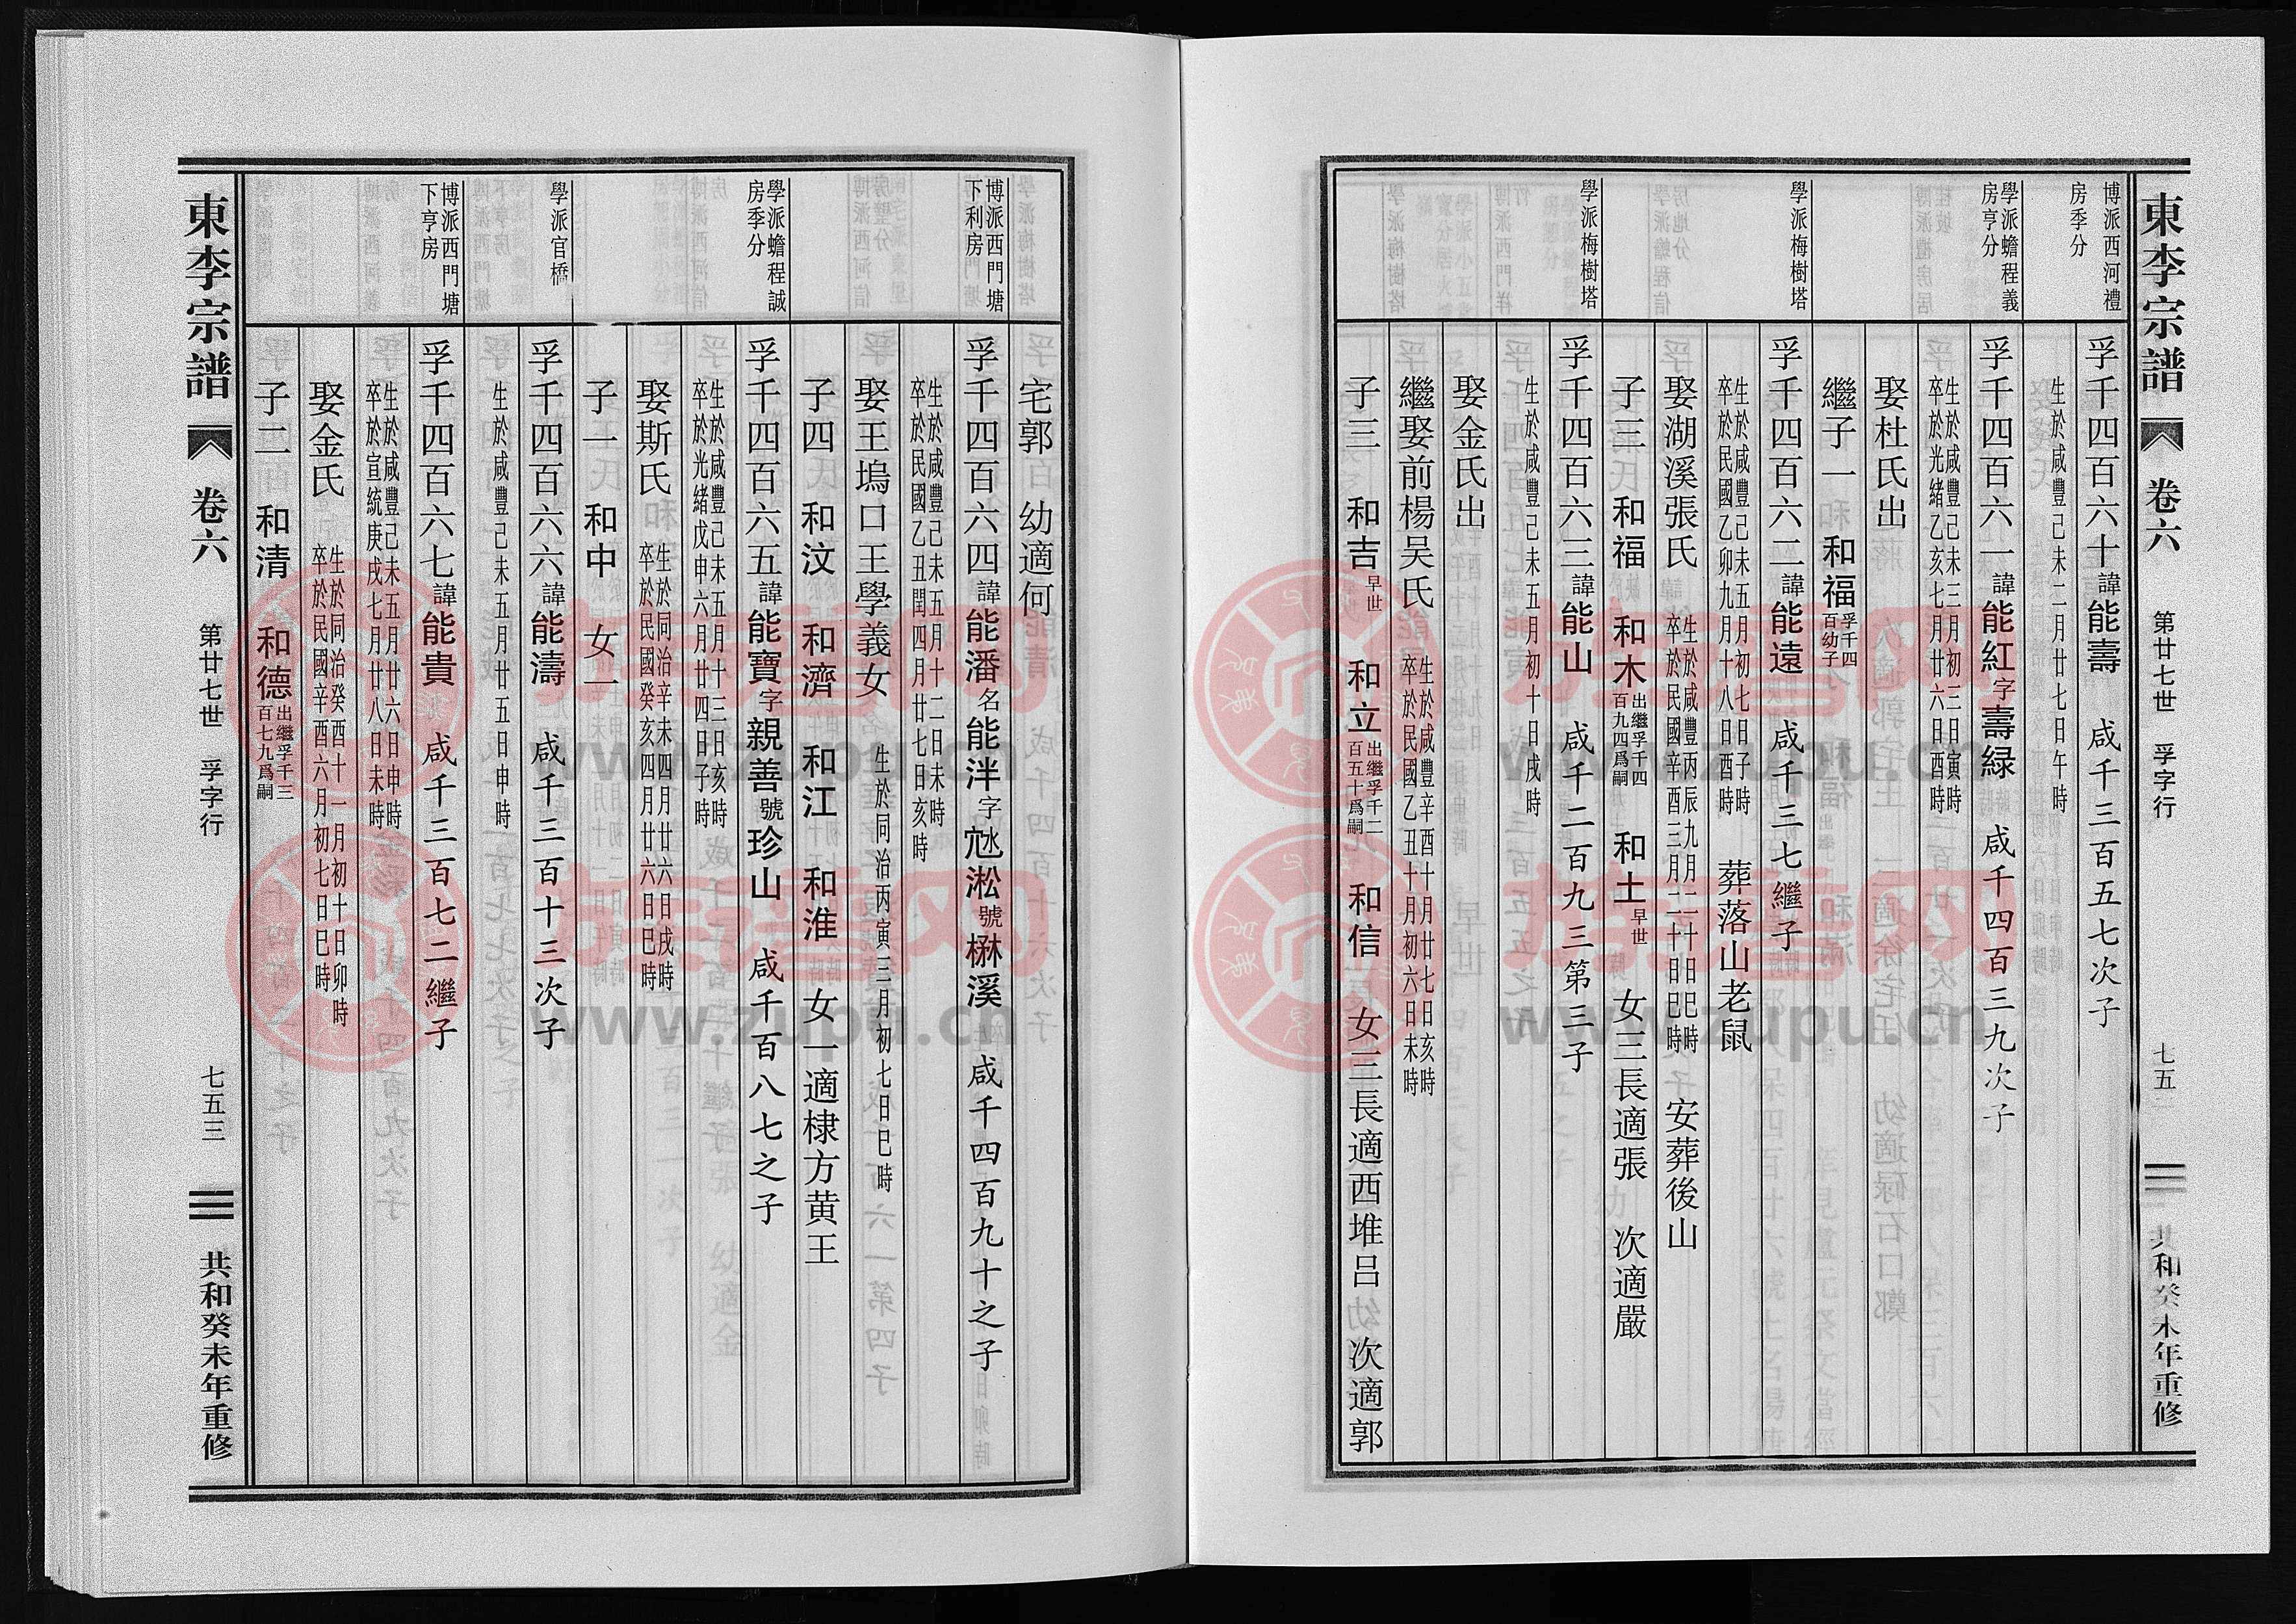 東李宗譜
卷六
第廿七世 孚字行
七五
共和癸未年重修
博派西河禮
房季分
孚千四百六十諱能壽 咸千三百五七次子
生於咸豐己未二月廿七日午時
學派蟾程義
房亨分
孚千四百六一諱能紅字壽緑 咸千四百三九次子
生於咸豐己未三月初三日寅時
卒於光緒乙亥七月廿六日酉時
娶杜氏出
繼子一 和福孚千四百幼子
學派梅樹塔
孚千四百六二諱能遠 咸千三七繼子
生於咸豐己未五月初七日子時 葬落山老鼠
卒於民國乙卯九月十八日酉時
娶湖溪張氏 生於咸豐丙辰九月二十日巳時 安葬後山
卒於民國辛酉三月二十日巳時
子三 和福 和木出繼孚千四百九四爲嗣 和土早世 女三長適張 次適嚴
學派梅樹塔
孚千四百六三諱能山 咸千二百九三第三子
生於咸豐己未五月初十日戌時
娶金氏出
繼娶前楊吴氏 生於咸豐辛酉十月廿七日亥時
卒於民國乙丑十月初六日未時
子三 和吉早世 和立出繼孚千二百五十爲嗣 和信 女三長適西堆吕 次適郭
宅郭 幼適何
博派西門塘
下利房
孚千四百六四諱能潘名能泮字尪淞號槑溪 咸千四百九十之子
生於咸豐己未五月十二日未時
卒於民國乙丑閏四月廿七日亥時
娶王塢口王學義女 生於同治丙寅三月初七日巳時
子四 和汶 和濟 和江 和淮 女一適棣方黄王
學派蟾程誠
房季分
孚千四百六五諱能寶字親善號珍山 咸千百八七之子
生於咸豐己未五月十三日亥時
卒於光緒戊申六月廿四日子時
娶斯氏 生於同治辛未四月廿六日戌時
卒於民國癸亥四月廿六日巳時
子一 和中 女一
學派官橋
孚千四百六六諱能濤 咸千三百十三次子
生於咸豐己未五月廿五日申時
博派西門塘
下亨房
孚千四百六七諱能貴 咸千三百七二繼子
生於咸豐己未五月廿六日申時
卒於宣統庚戌七月廿八日未時
娶金氏 生於同治癸酉十一月初十日卯時
卒於民國辛酉六月初七日巳時
子二 和清 和德出繼孚千三百七九爲嗣
東李宗譜
卷六
第廿七世 孚字行
七五三
共和癸未年重修
族譜网
www.zupu.cn
族譜网
www.zupu.cn
族譜网
www.zupu.cn
族譜网
www.zupu.cn